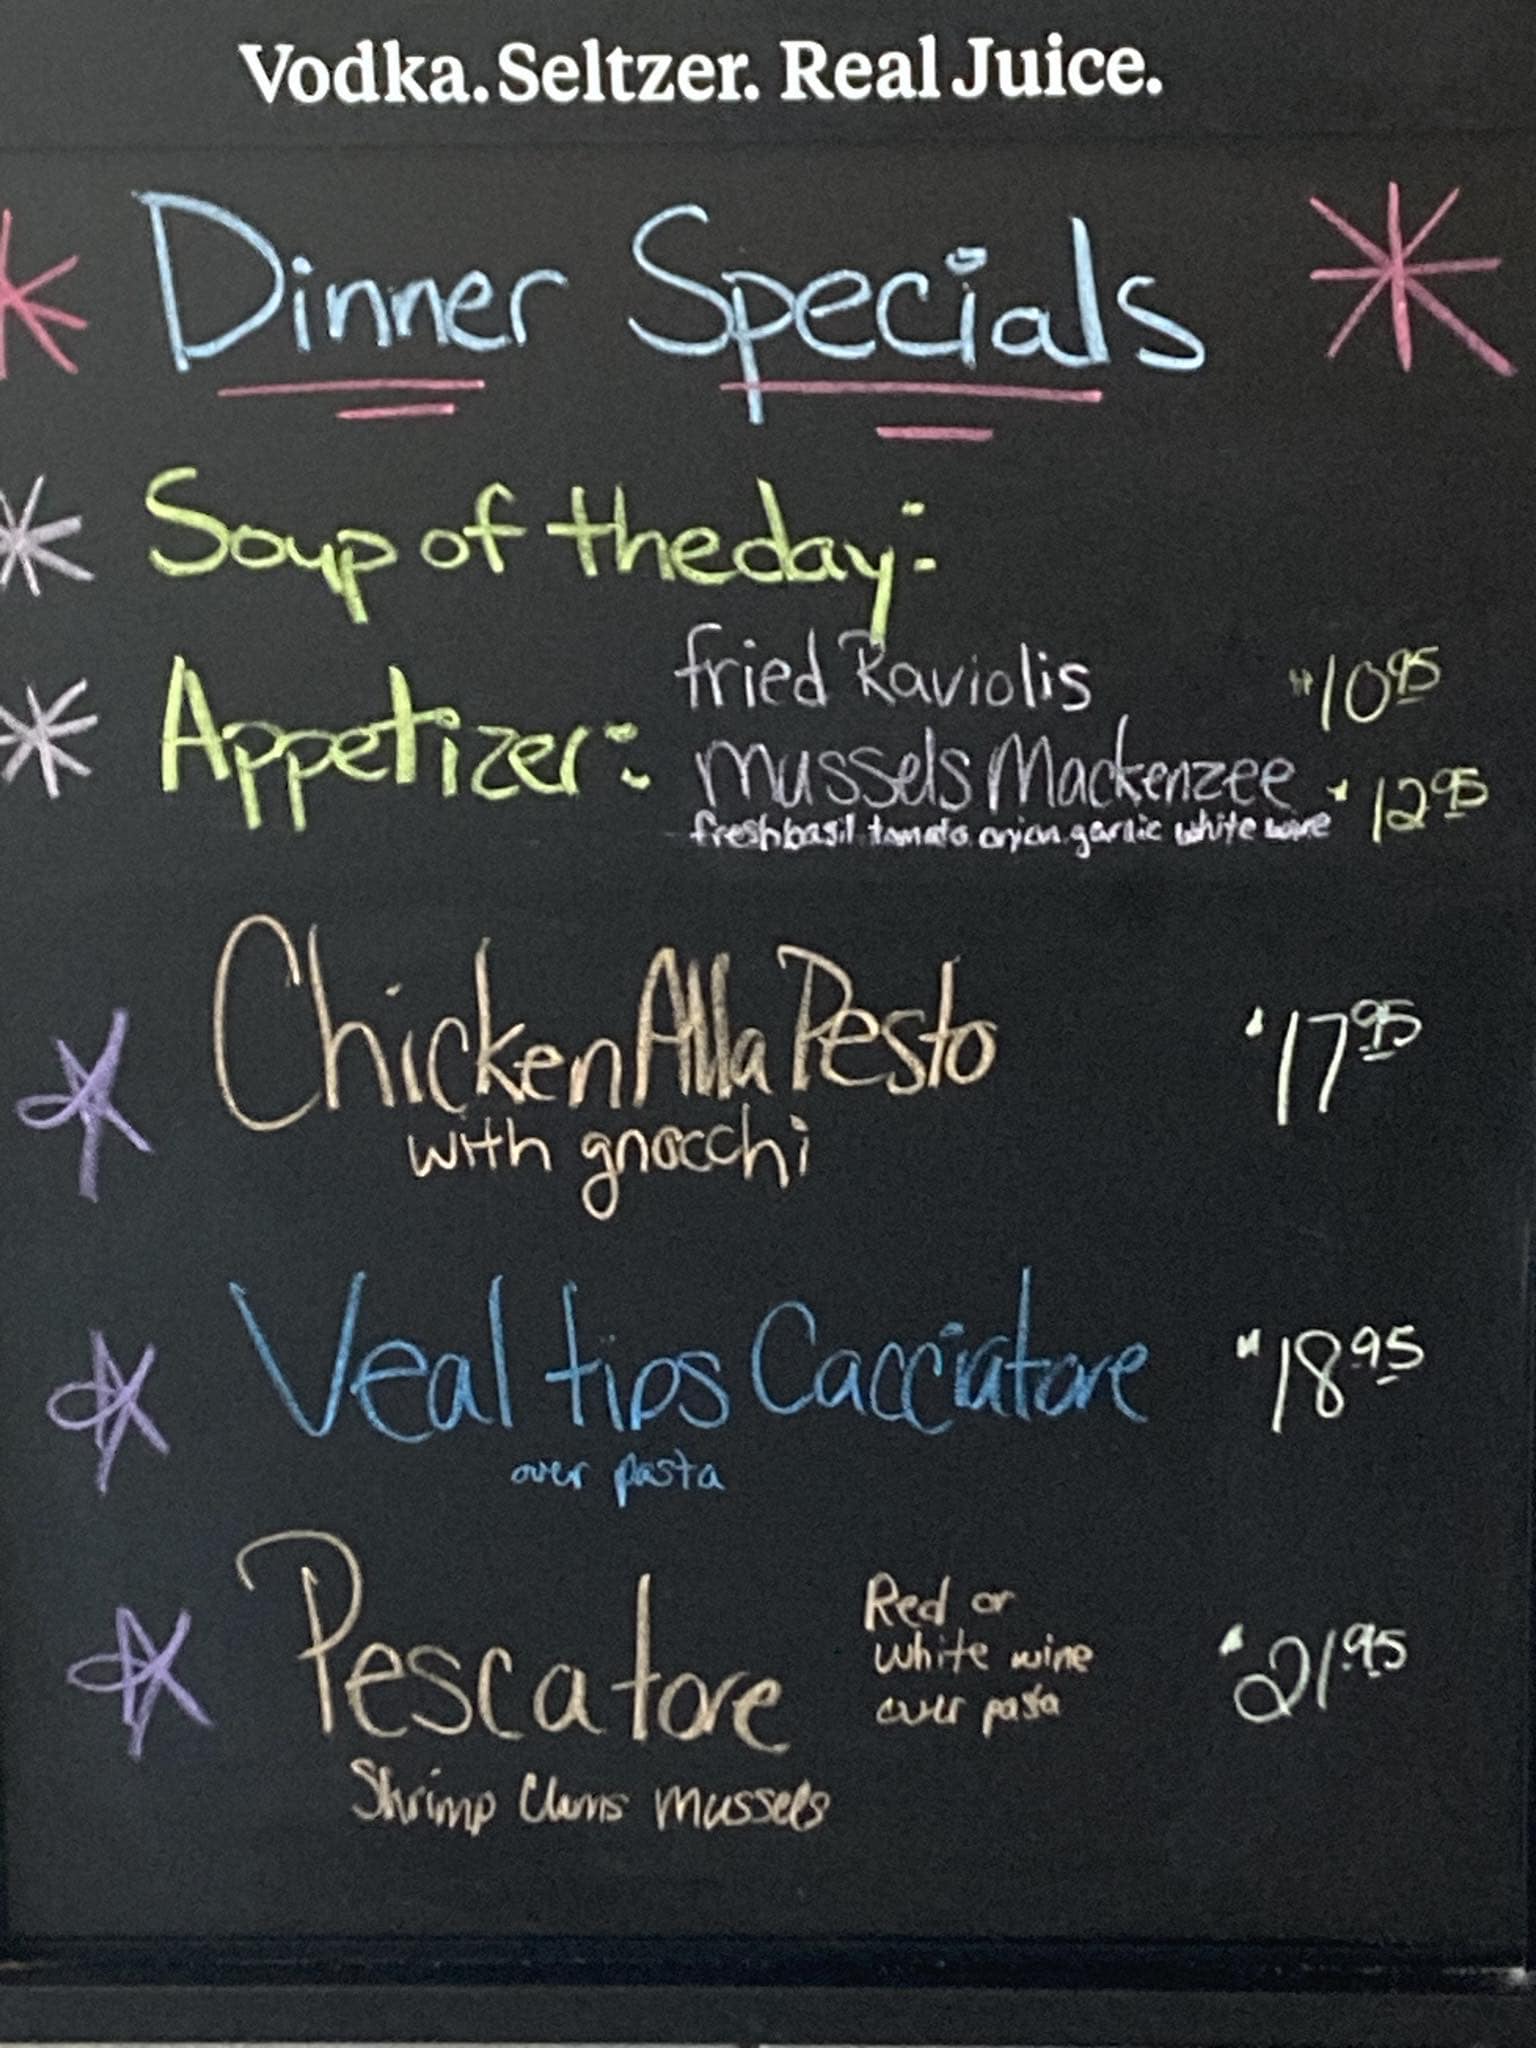 Vodka. Seltzer. Real Juice.
Dinner Specials
Soup of the day:
Appetizer: fried Raviolis $10.95
mussels Mackenzee $12.95
fresh basil tomato onion garlic white wine
Chicken Alla Pesto $17.95
with gnocchi
Veal tips Cacciatore $18.95
over pasta
Pescatore Red or
white wine
over pasta $21.95
Shrimp Clams mussels